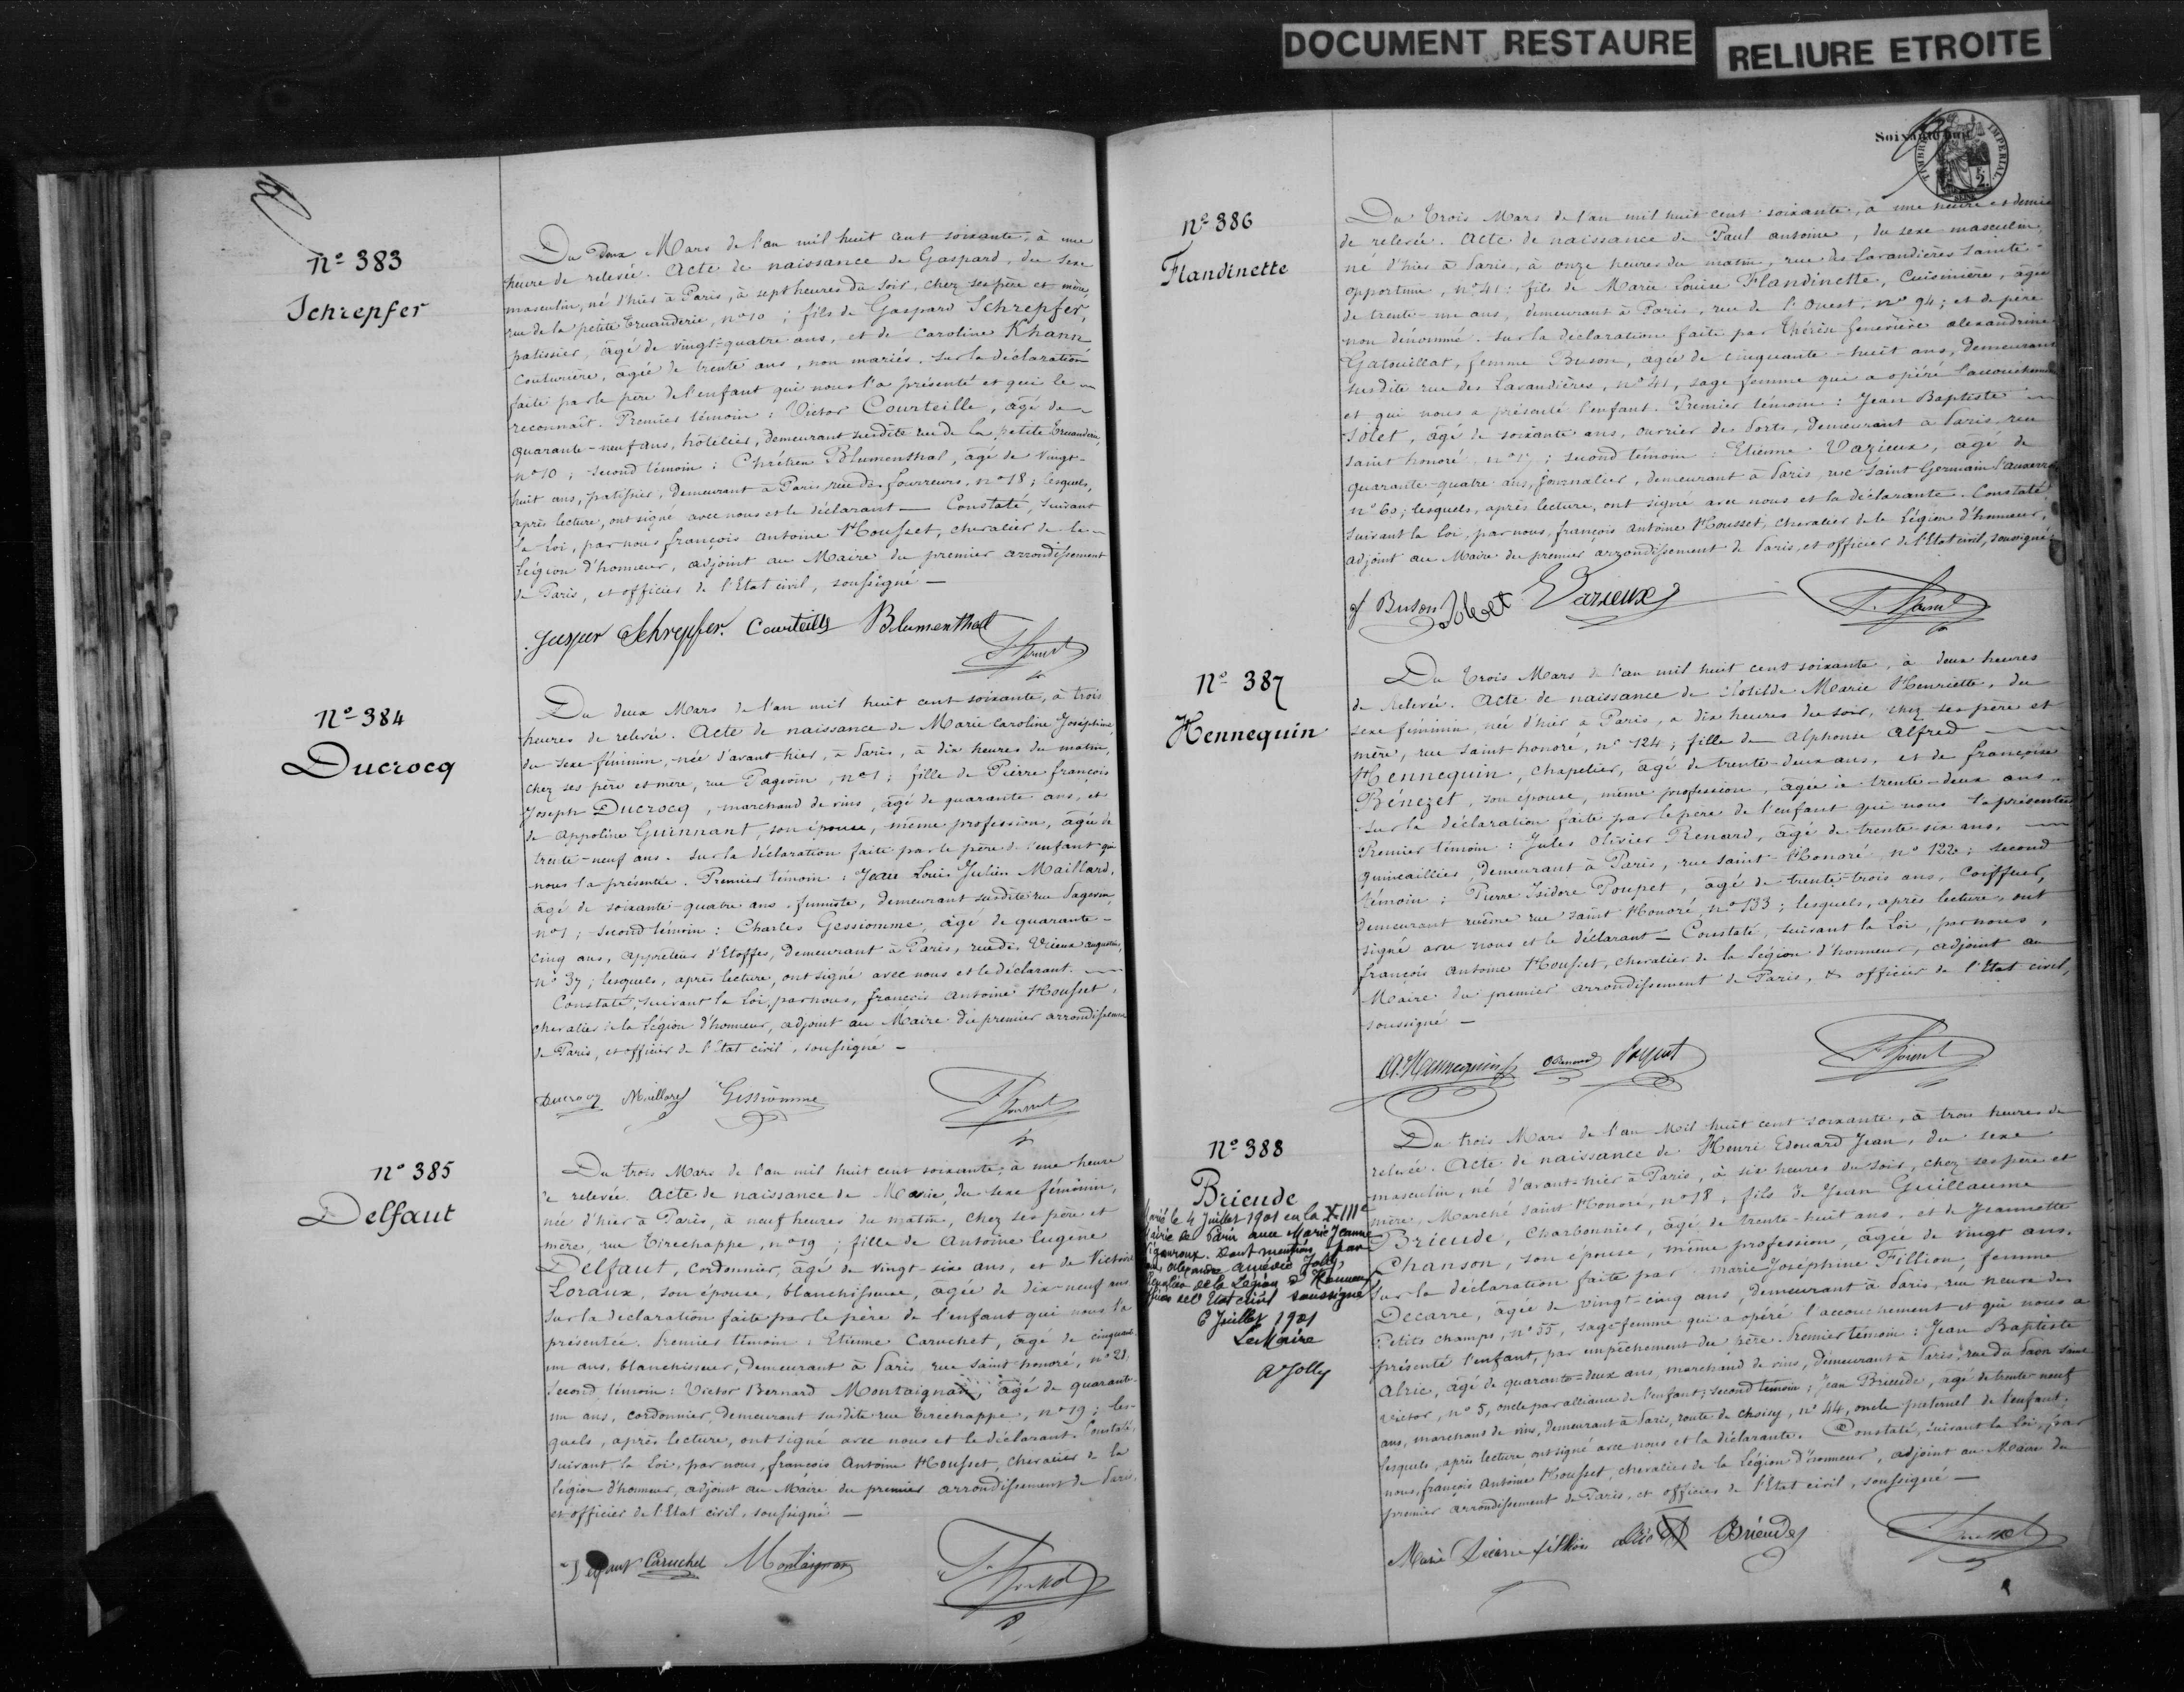 DOCUMENT RESTAURE
RELIURE ETROITE
N° 383
Schrepfer
Du Deux Mars de l'an mil huit cent soixante, à une
heure de relevée. Acte de naissance de Gaspard, du sexe
masculin, né d'hier à Paris, à sept heures du soir, chez ses père et mère,
rue de la petite Truanderie, n° 10 ; fils de Gaspard Schrepfer,
patissier, âgé de vingt-quatre ans, et de Caroline Khann
couturière, âgée de trente ans, non mariés. Sur la déclaration
faite par le père de l'enfant qui nous l'a présenté et qui le
reconnaît. Premier témoin : Victor Courteille, âgé de
quarante-neuf ans, hôtelier, demeurant susdite rue de la petite Truanderie,
n° 10 ; second témoin : Chrétien Blumenthal, âgé de vingt-
huit ans, patissier, demeurant à Paris, rue des fourreurs, n° 18 ; lesquels,
après lecture, ont signé avec nous et le déclarant — Constaté, suivant
la Loi, par nous françois antoine Housset, chevalier de la
Légion d'honneur, adjoint au Maire du premier arrondissement
de Paris, et officier de l'Etat civil, soussigné —
Gaspar Schrepfer. Courteille Blumenthal
N° 384
Ducrocq
Du deux Mars de l'an mil huit cent soixante, à trois
heures de relevée. Acte de naissance de Marie Caroline Joséphine,
du sexe féminin, née d'avant-hier, à Paris, à dix heures du matin,
chez ses père et mère, rue Pagevin, n° 1 ; fille de Pierre françois
Joseph Ducrocq, marchand de vins, âgé de quarante ans, et
de Appoline Guinnant, son épouse, même profession, âgée de
trente-neuf ans. Sur la déclaration faite par le père de l'enfant qui
nous l'a présentée. Premier témoin : Jean Louis Julien Maillard,
âgé de soixante-quatre ans, fumiste, demeurant susdite rue Pagevin,
n° 1 ; second témoin : Charles Gessiomme, âgé de quarante-
cinq ans, appreteur d'Etoffes, demeurant à Paris, rue des Vieux augustins,
n° 37 ; lesquels, après lecture, ont signé avec nous et le déclarant.
Constaté, suivant la Loi, par nous, françois antoine Housset,
chevalier de la Légion d'honneur, adjoint au Maire du premier arrondissement
de Paris, et officier de l'état civil, soussigné —
Ducrocq Maillard Gessiomme
N° 385
Delfaut
Du trois Mars de l'an mil huit cent soixante, à une heure
de relevée. Acte de naissance de Marie, du sexe féminin,
née d'hier à Paris, à neuf heures du matin, chez ses père et
mère, rue Tirechappe, n° 19 ; fille de Antoine Eugène
Delfaut, cordonnier, âgé de vingt-six ans, et de Victoire
Loraux, son épouse, blanchisseuse, âgée de dix-neuf ans
Sur la déclaration faite par le père de l'enfant qui nous l'a
présentée. Premier témoin : Etienne Caruchet, âgé de cinquante-
un ans, blanchisseur, demeurant à Paris, rue saint honoré, n° 21,
Second témoin : Victor Bernard Montaignan, âgé de quarante-
un ans, cordonnier, demeurant susdite rue Tirechappe, n° 19 ; les-
quels, après lecture, ont signé avec nous et le déclarant. Constaté,
suivant la Loi, par nous, françois Antoine Housset, chevalier de la
Légion d'honneur, adjoint au Maire du premier arrondissement de Paris,
et officier de l'Etat civil, soussigné —
Delfaut Caruchet Montaignan
TIMBRE IMPERIAL
SEINE
N° 386
Flandinette
Du Trois Mars de l'an mil huit cent soixante, à une heure et demie
de relevée. Acte de naissance de Paul antoine, du sexe masculin,
né d'hier à Paris, à onze heures du matin, rue des Lavandières Sainte-
Opportune, n° 41 : fils de Marie Louise Flandinette, Cuisinière, âgée
de trente-un ans, demeurant à Paris, rue de l'Ouest, n° 94 ; et de père
non dénommé. Sur la déclaration faite par Thérèse Geneviève alexandrine
Gatouillat, femme Buson, âgée de cinquante-huit ans, demeurant
susdite rue des Lavandières, n° 41, sage femme qui a opéré l'accouchement
et qui nous a présenté l'enfant. Premier témoin : Jean Baptiste
Jolet, âgé de soixante ans, ouvrier des Ports, demeurant à Paris, rue
saint honoré, ; second témoin : Etienne Varieux, âgé de
quarante-quatre ans, journalier, demeurant à Paris, rue Saint Germain l'auxerrois
n° 60 ; lesquels, après lecture, ont signé avec nous et la déclarante. Constaté
suivant la Loi, par nous, françois antoine Housset, chevalier de la Légion d'honneur,
adjoint au Maire du premier arrondissement de Paris, et officier de l'Etat civil, soussigné
f Buson Varieux
N° 387
Hennequin
Du Trois Mars de l'an mil huit cent soixante, à deux heures
de Relevée. Acte de naissance de Clotilde Marie Henriette, du
sexe féminin, née d'hier à Paris, à dix heures du soir, chez ses père et
mère, rue Saint honoré, n° 124 ; fille de Alphonse Alfred
Hennequin, chapelier, âgé de trente-deux ans, et de françoise
Bénezet, son épouse, même profession, âgée de trente-deux ans
Sur la déclaration faite par le père de l'enfant qui nous l'a présentée
Premier témoin : Jules Olivier Renard, âgé de trente-six ans,
quincaillier, demeurant à Paris, rue Saint-Honoré, n° 122 ; second
témoin : Pierre Isidore Poupet, âgé de trente-trois ans, coiffeur,
demeurant même rue Saint Honoré, n° 133 ; lesquels, après lecture, ont
signé avec nous et le déclarant — Constaté, suivant la Loi, par nous,
françois Antoine Housset, chevalier de la Légion d'honneur, adjoint au
Maire du premier arrondissement de Paris, & officier de l'Etat civil,
soussigné —
A. Hennequin Renard Poupet
N° 388
Brieude
Marié le 4 Juillet 1901 en la XIIIe
Mairie de Paris avec Marie Jeanne
Vigouroux. Dont mention, par
nous, Alexandre Amédée Jolly,
Chevalier de la Légion d'Honneur
Officier de l'Etat civil soussigné
6 Juillet 1901
Le Maire
A Jolly
Du trois Mars de l'an mil huit cent soixante, à trois heures de
relevée. Acte de naissance de Henri Edouard Jean, du sexe
masculin, né d'avant-hier à Paris, à six heures du soir, chez ses père et
mère, Marché Saint-Honoré, n° 18, fils de Jean Guillaume
Brieude, Charbonnier, âgé de trente-huit ans, et de Jeannette
Chanson, son épouse, même profession, âgée de vingt ans.
Sur la déclaration faite par Marie Joséphine Fillion, femme
Decarre, âgée de vingt-cinq ans, demeurant à Paris, rue neuve des
Petits champs, n° 55, sage femme qui a opéré l'accouchement et qui nous a
présenté l'enfant, par empêchement du père. Premier témoin : Jean Baptiste
Alric, âgé de quarante-deux ans, marchand de vins, demeurant à Paris, rue du Paon Saint
Victor, n° 5, oncle par alliance de l'enfant ; second témoin ; Jean Brieude, âgé de trente-neuf
ans, marchand de vins, demeurant à Paris, route de Choisy, n° 44, oncle paternel de l'enfant ;
lesquels, après lecture, ont signé avec nous et la déclarante. Constaté, suivant la Loi, par
nous, françois Antoine Housset, chevalier de la Légion d'honneur, adjoint au Maire du
premier arrondissement de Paris, et officier de l'Etat civil, soussigné —
Marie fillion alric Brieude